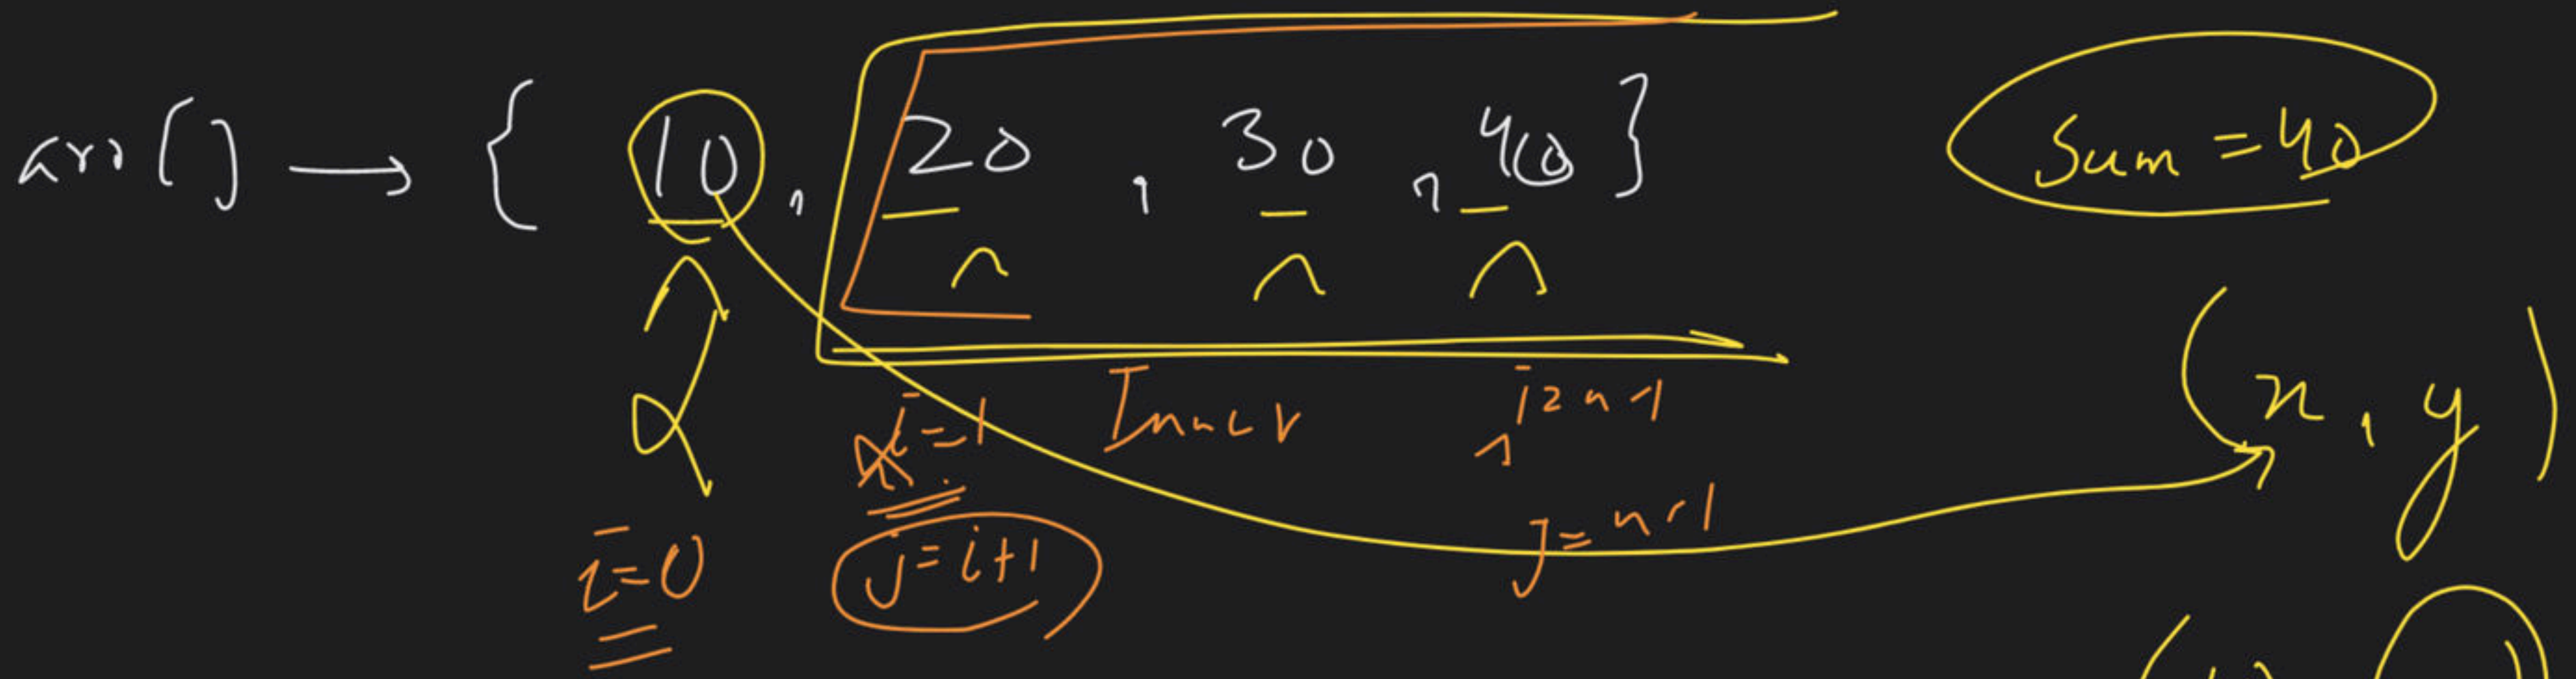 arr[] → { 10, 20, 30, 40 }
Sum = 40
(x, y)
i=1 Inner i=n-1
i=0 j=i+1 j=n-1